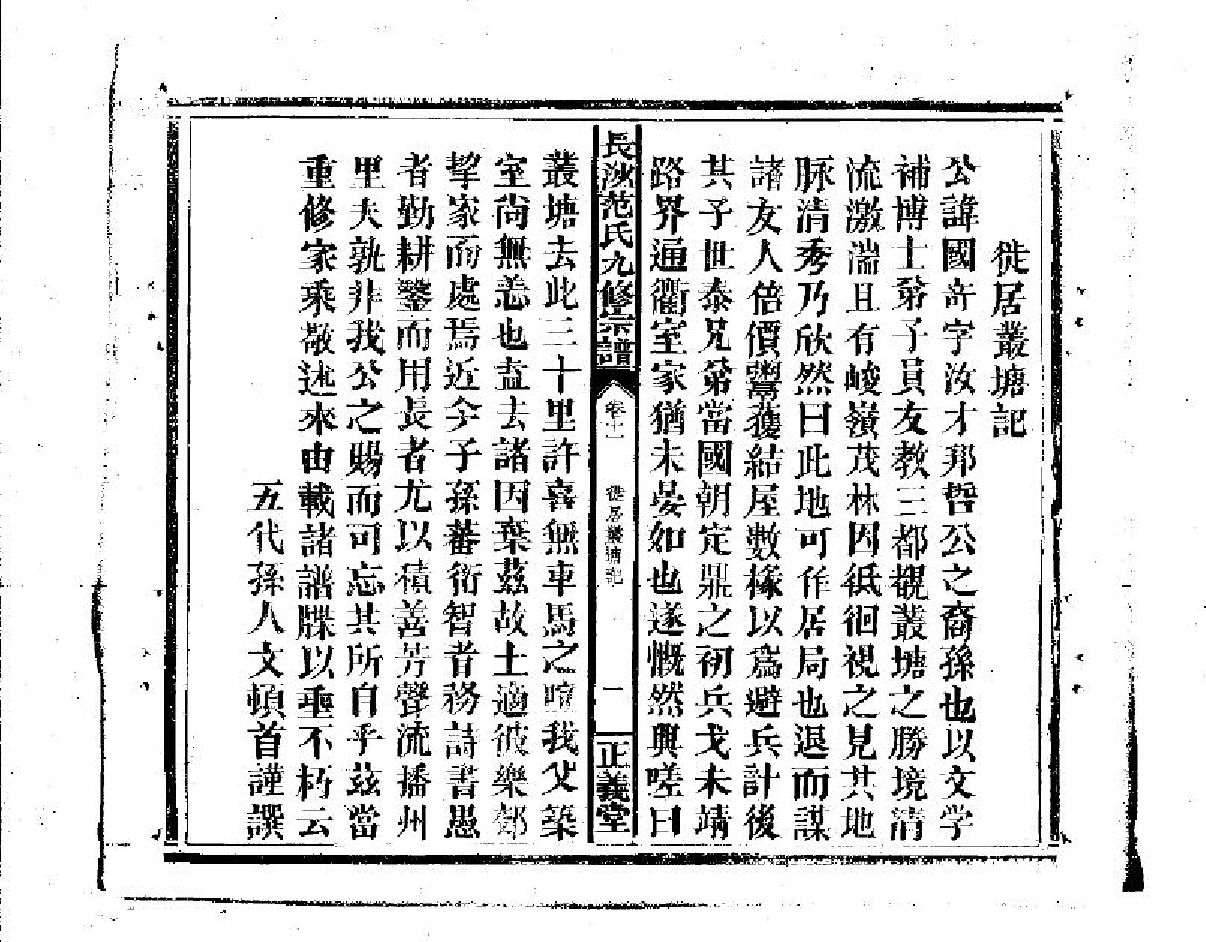 徙居叢塘記
公諱國許字汝才邦哲公之裔孫也以文学
補博士弟子員友教三都覩叢塘之勝境清
流激湍且有峻嶺茂林因祗徊視之見其地
脉清秀乃欣然曰此地可作居局也退而謀
諸友人倍價鬻獲結屋數椽以爲避兵計後
其子世泰兄弟當國朝定鼎之初兵戈未靖
路界通衢室家猶未晏如也遂慨然興嗟曰
長沙范氏九修宗譜
卷十一
徙居叢塘記
一
正義堂
叢塘去此三十里許喜無車馬之喧我父築
室尙無恙也盍去諸因棄茲故土適彼樂郊
挈家而處焉近今子孫蕃衍智者務詩書愚
者勤耕鑿而用長者尤以積善芳聲流播州
里夫孰非我公之賜而可忘其所自乎茲當
重修家乘敬述來由載諸譜牒以垂不朽云
五代孫人文頓首謹譔